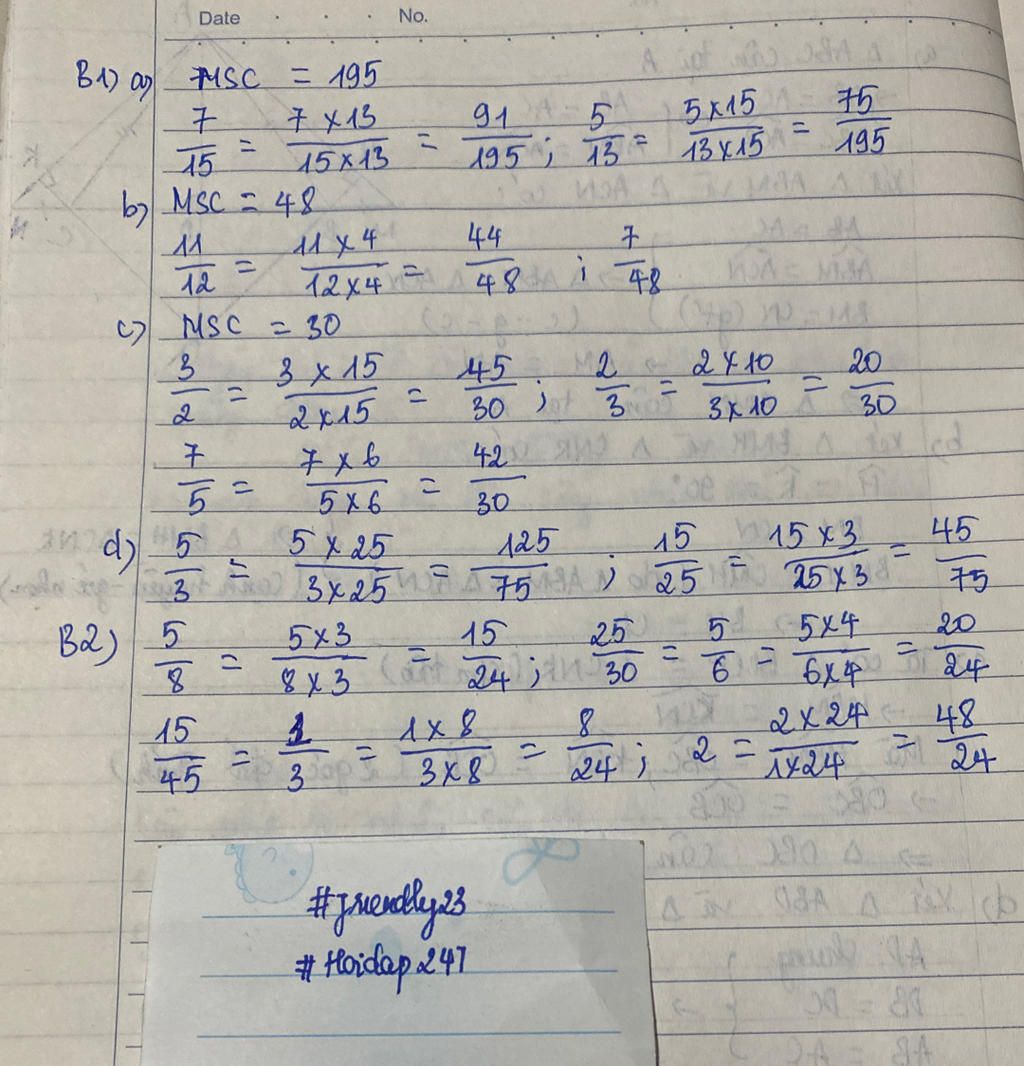 Date No.
B1) a) MSC = 195
7/15 = 7 x 13/15 x 13 = 91/195 ; 5/13 = 5 x 15/13 x 15 = 75/195
b) MSC = 48
11/12 = 11 x 4/12 x 4 = 44/48 ; 7/48
c) MSC = 30
3/2 = 3 x 15/2 x 15 = 45/30 ; 2/3 = 2 x 10/3 x 10 = 20/30
7/5 = 7 x 6/5 x 6 = 42/30
d) 5/3 = 5 x 25/3 x 25 = 125/75 ; 15/25 = 15 x 3/25 x 3 = 45/75
B2) 5/8 = 5 x 3/8 x 3 = 15/24 ; 25/30 = 5/6 = 5 x 4/6 x 4 = 20/24
15/45 = 1/3 = 1 x 8/3 x 8 = 8/24 ; 2 = 2 x 24/1 x 24 = 48/24
#friendly23
#Hoidap247